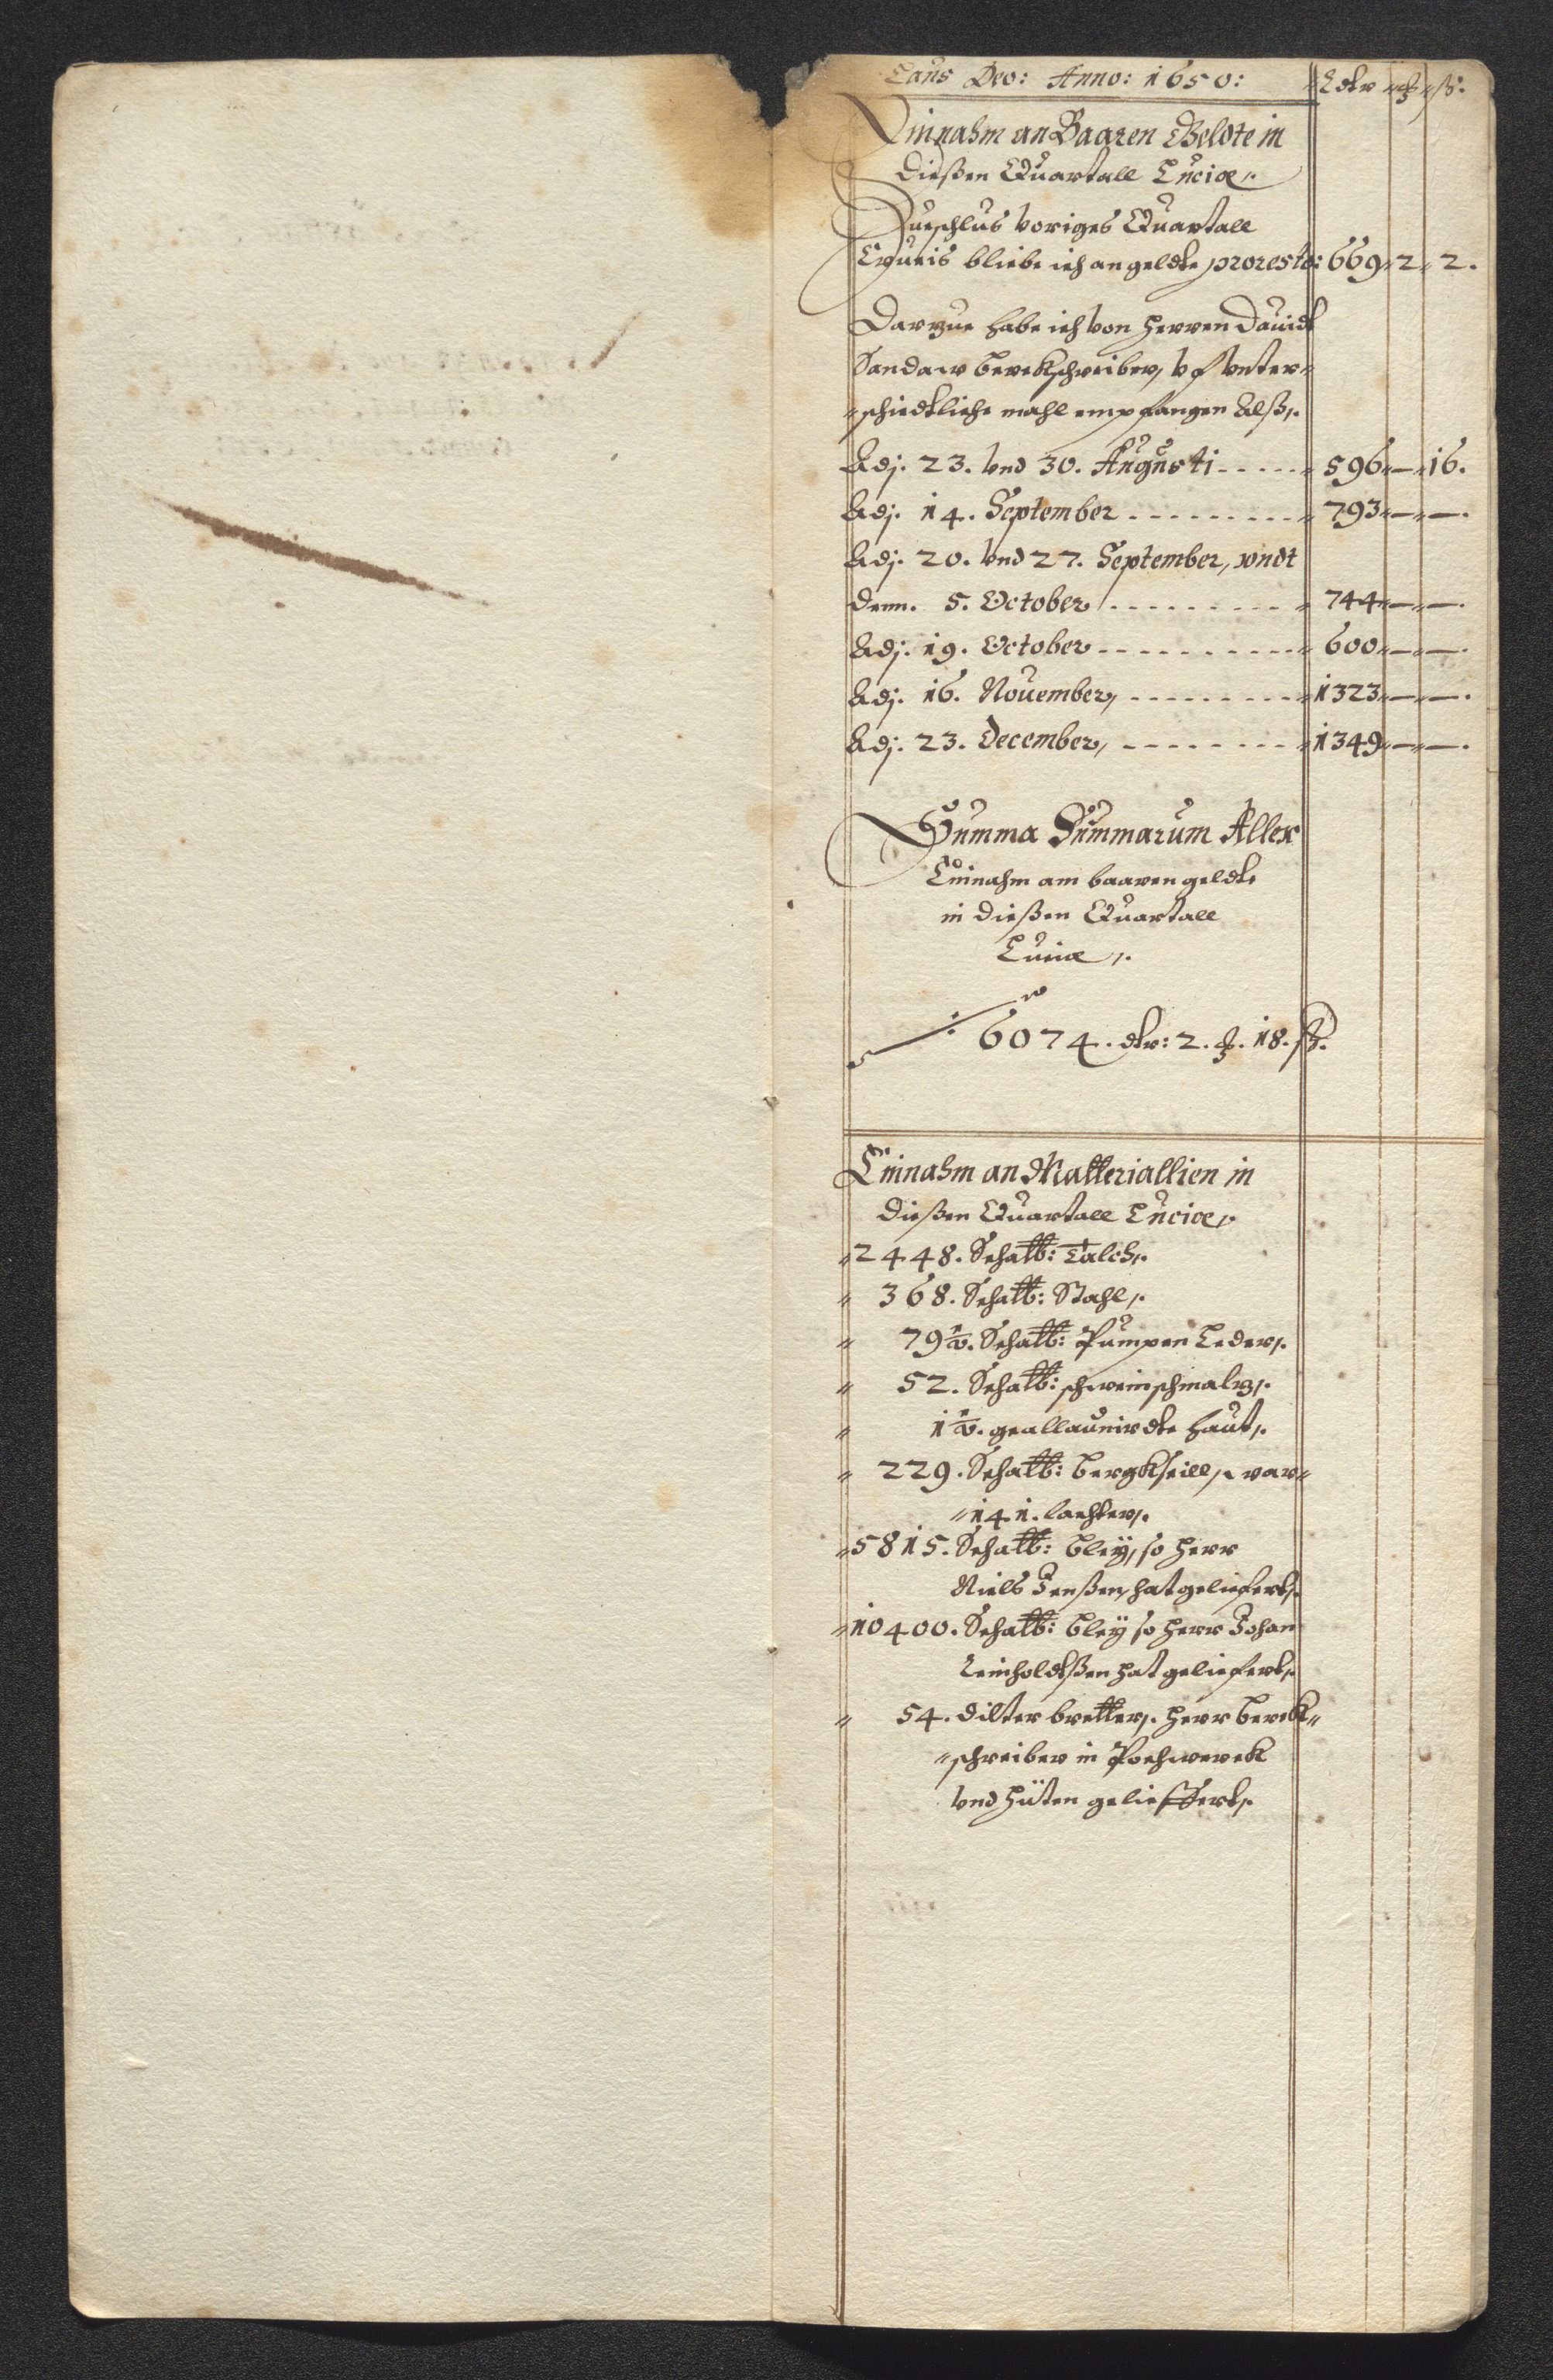 Laus Deo: Anno: 1650: Rdlr ß.
Einnahm an Baaren Geldte in
dießen Quartall Luciæ.
Zueschlus voriges Quartall
Crucis bliebe ich an geldte pro resto: 669 2 2.
Darzue habe ich von Herren Dauidt
Sandaw Berckschreiber, vf vnter=
=schiedtliche mahl empfangen Alß,.
Adj. 23. vnd 30. Augusti - - - - - 596 — 16.
Adj. 14. September - - - - - - - - - 793 — —.
Adj. 20. vnd 27. September, vndt
denn. 5. October - - - - - - - - - 744 — —.
Adj. 19. October - - - - - - - - - 600 — —.
Adj. 16. Nouember, - - - - - - - - - 1323 — —.
Adj. 23. December, - - - - - - - - 1349 — —.
Summa Summarum Aller
Einnahm am baaren geldte
in dießen Quartall
Luciæ,.
6074. dlr: 2. 18. ß.
Einnahm an Matteriallien in
dießen Quartall Luciæ,
2448. Schalb: Talch,.
368. Schalb: Stahl,.
79½. Schalb: Pumpen Leder,.
52. Schalb: schweinschmaltz,.
1½. geallaunirdte haut,.
229. Schalb: bergkseill, war=
=141. lachter,.
5815. Schalb: bleÿ, so Herr
Niels Jenßen, hat geliefert,.
10400. Schalb: bleÿ so Herr Johan
Reinholdtßen hat geliefert,.
54. dilter bretter,. Herr berck=
=schreiber in Pochwerck
vnd Hüten gelieffert,.